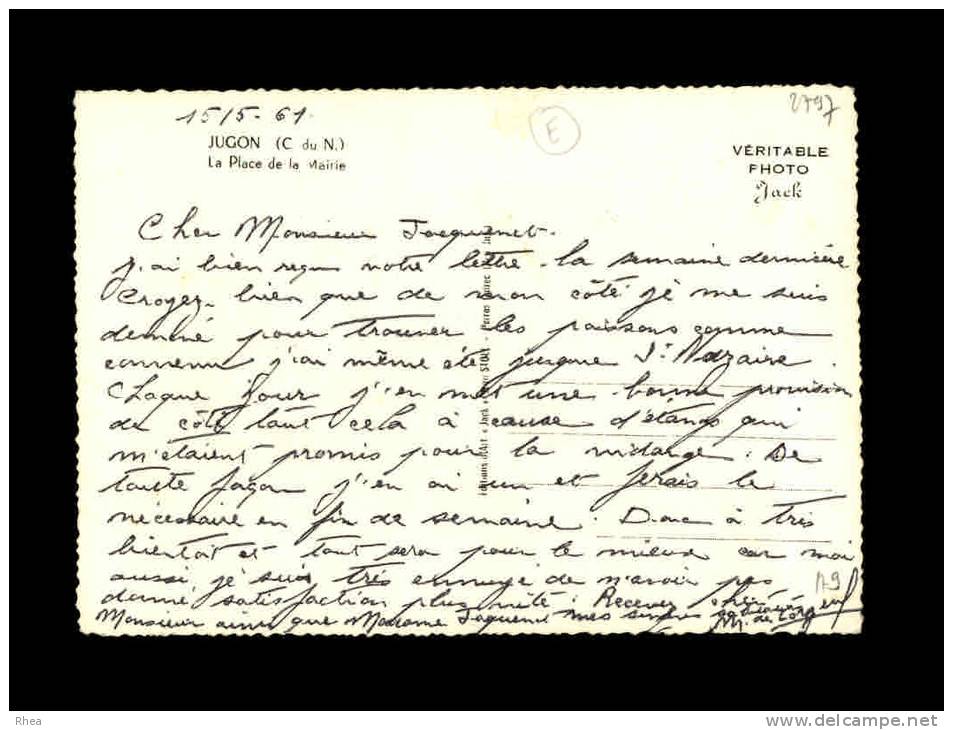 15/5-61
2797
E
JUGON (C du N.)
La Place de la Mairie
VÉRITABLE
PHOTO
Jack
Cher Monsieur Jacquenet.
j'ai bien reçu votre lettre la semaine dernière
Croyez bien que de mon côté je me suis
demené pour trouver les poissons comme
convenu j'ai même été jusque St Nazaire
Chaque jour j'en met une bonne provision
de côté tout cela à cause d'étangs qui
m'étaient promis pour la vidange. De
toute façon j'en ai un et ferais le
nécessaire en fin de semaine. Donc à très
bientôt et tout sera pour le mieux car moi
aussi je suis très ennuyé de n'avoir pas
donné satisfaction plus vite. Recevez cher
Monsieur ainsi que Madame Jaquenet mes
A9
Editions d'Art Jack
Rhea
www.delcampe.net